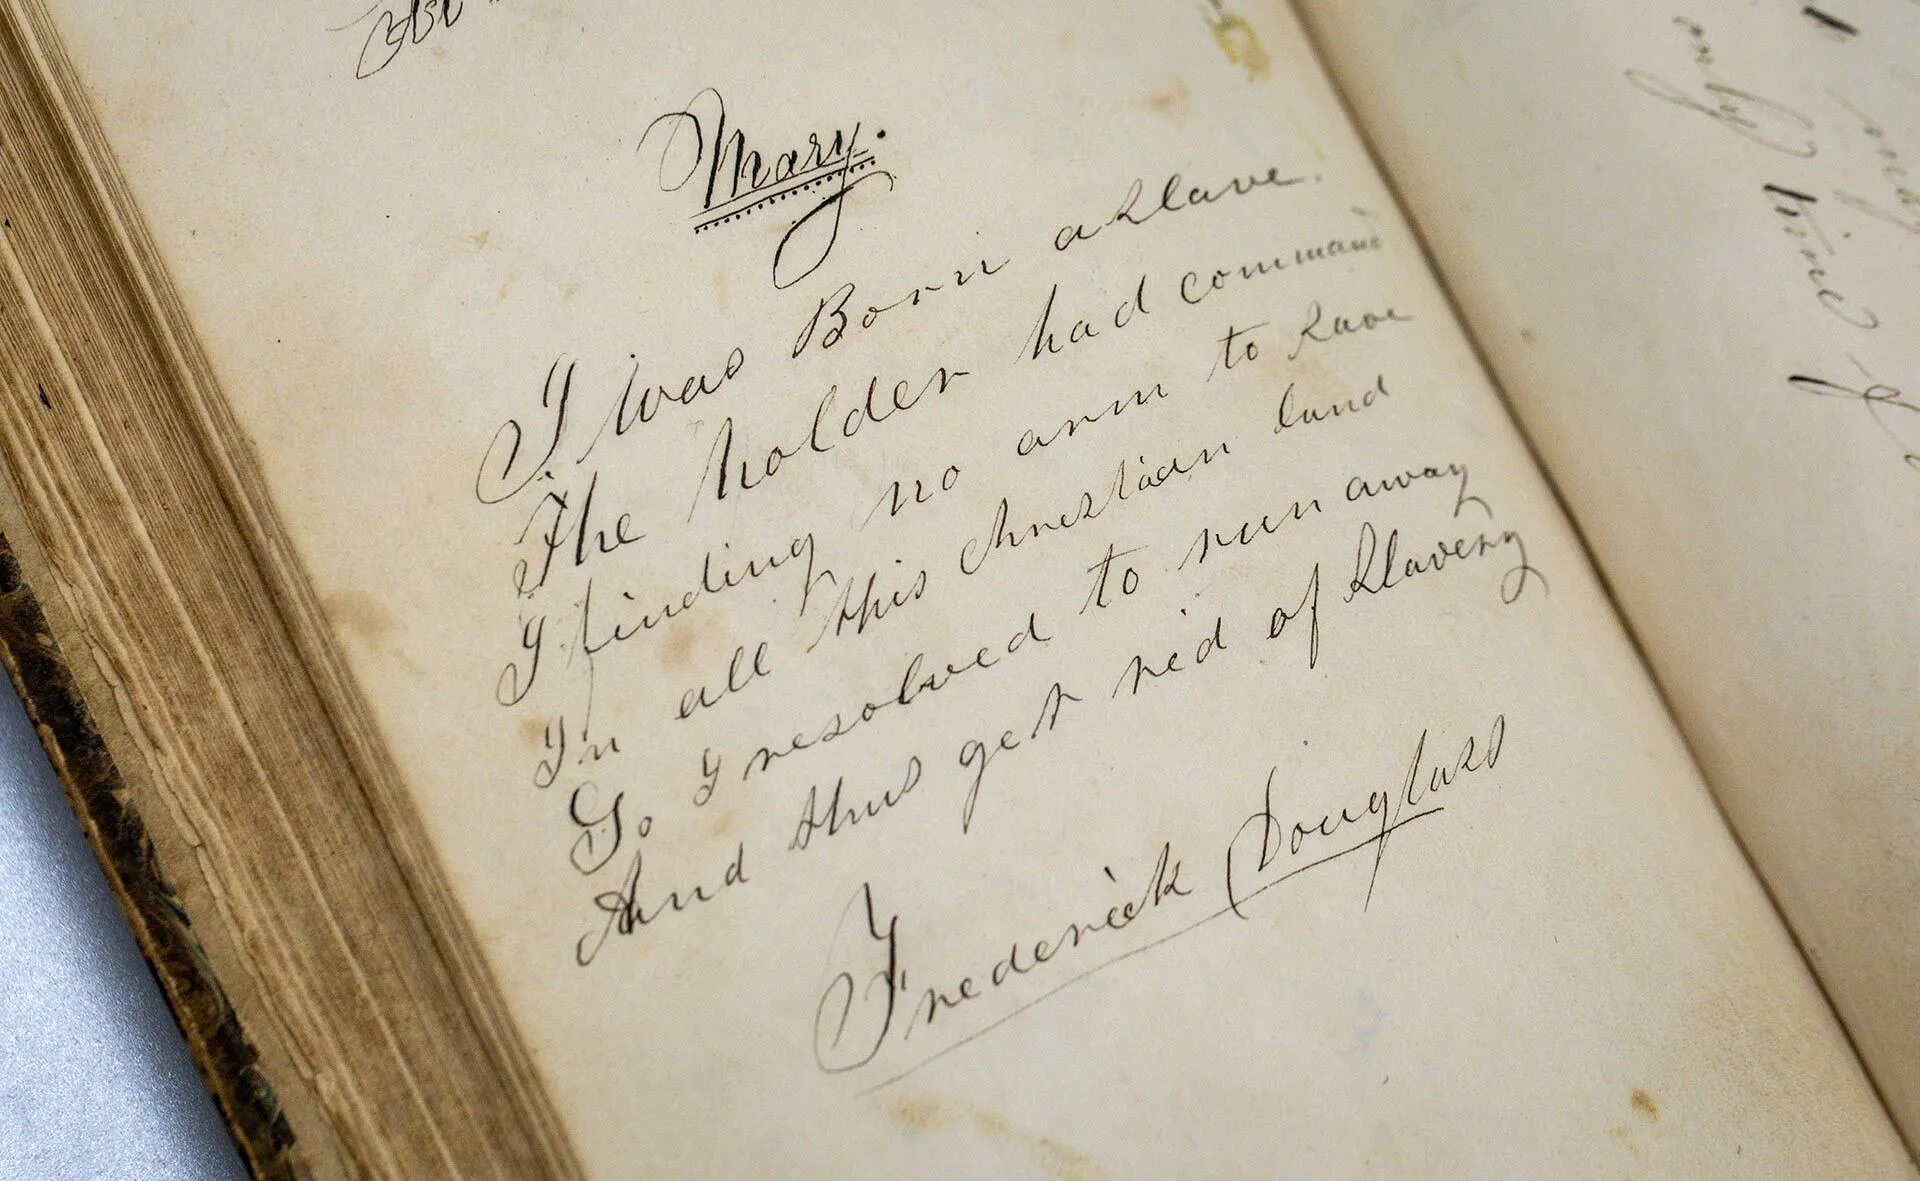 Mary.
I was Born a slave.
The holder had command
I finding no arm to save
In all this christian land
So I resolved to run away
And thus get rid of slavery
Frederick Douglass
only
time
of